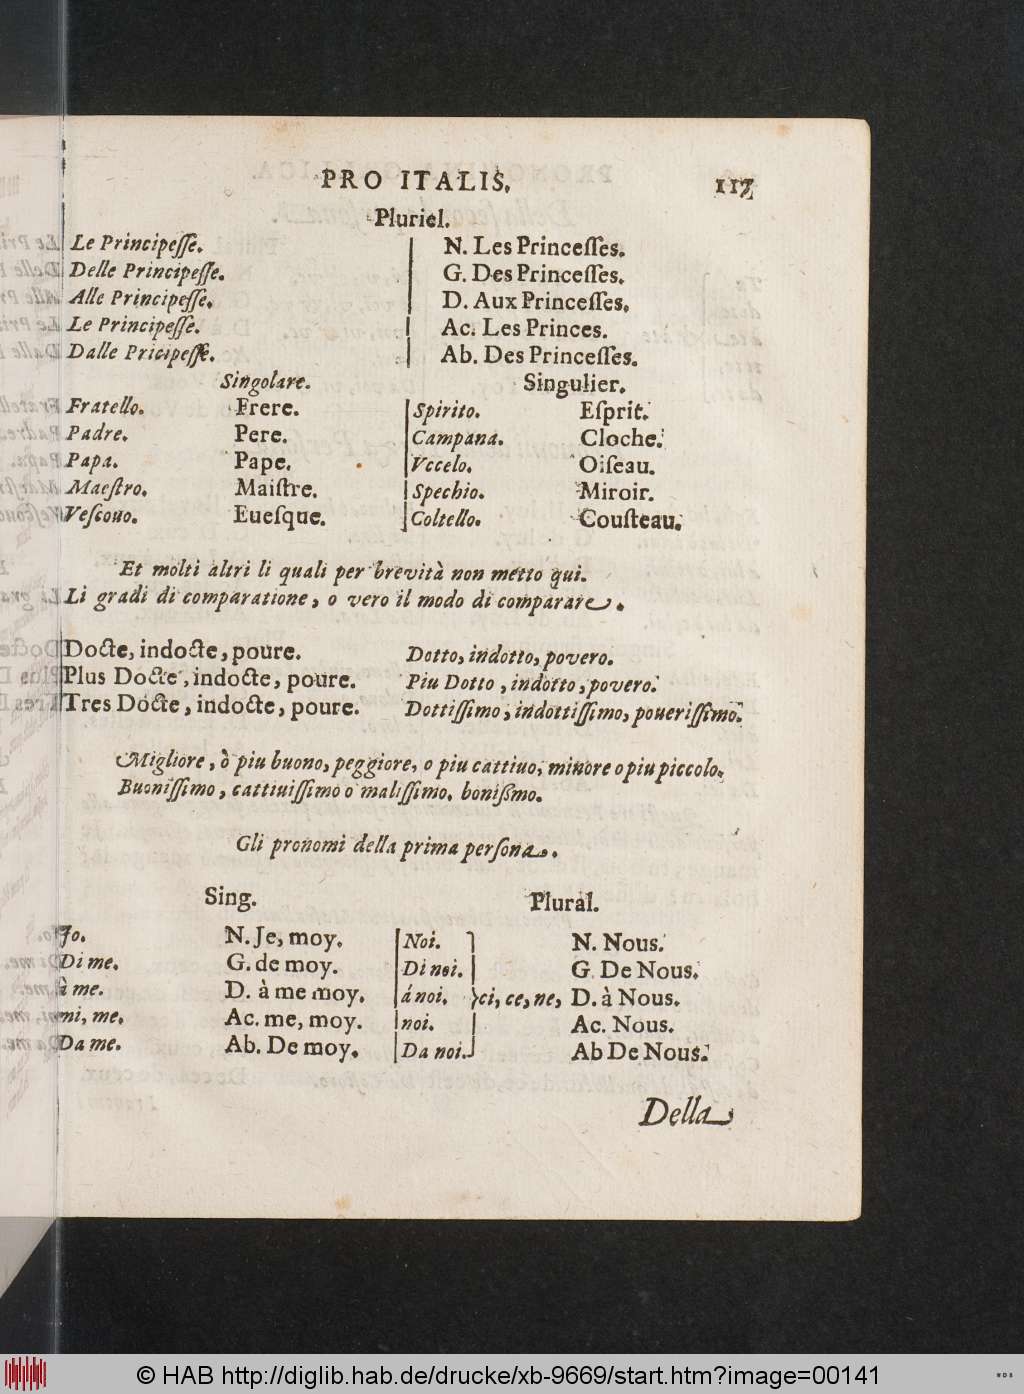 PRO ITALIS. 117
Pluriel.
Le Principeſſe. N. Les Princeſſes.
Delle Principeſſe. G. Des Princeſſes.
Alle Principeſſe. D. Aux Princeſſes.
Le Principeſſe. Ac. Les Princes.
Dalle Pricipeſſe. Ab. Des Princeſſes.
Singolare. Singulier.
Fratello. Frere. Spirito. Eſprit.
Padre. Pere. Campana. Cloche.
Papa. Pape. Vccelo. Oiſeau.
Maeſtro. Maiſtre. Spechio. Miroir.
Veſcouo. Eueſque. Coltello. Couſteau.
Et molti altri li quali per brevità non metto qui.
Li gradi di comparatione, o vero il modo di comparare.
Docte, indocte, poure. Dotto, indotto, povero.
Plus Docte, indocte, poure. Piu Dotto, indotto, povero.
Tres Docte, indocte, poure. Dottiſſimo, indottiſſimo, poueriſſimo.
Migliore, ò piu buono, peggiore, o piu cattiuo, minore o piu piccolo.
Buoniſſimo, cattiuiſſimo o maliſſimo. bonißmo.
Gli pronomi della prima perſona.
Sing. Plural.
Jo. N. Je, moy. Noi. N. Nous.
Di me. G. de moy. Di noi. G. De Nous.
à me. D. à me moy. á noi. }ci, ce, ne, D. à Nous.
mi, me. Ac. me, moy. noi. Ac. Nous.
Da me. Ab. De moy. Da noi. Ab De Nous.
Della
© HAB http://diglib.hab.de/drucke/xb-9669/start.htm?image=00141